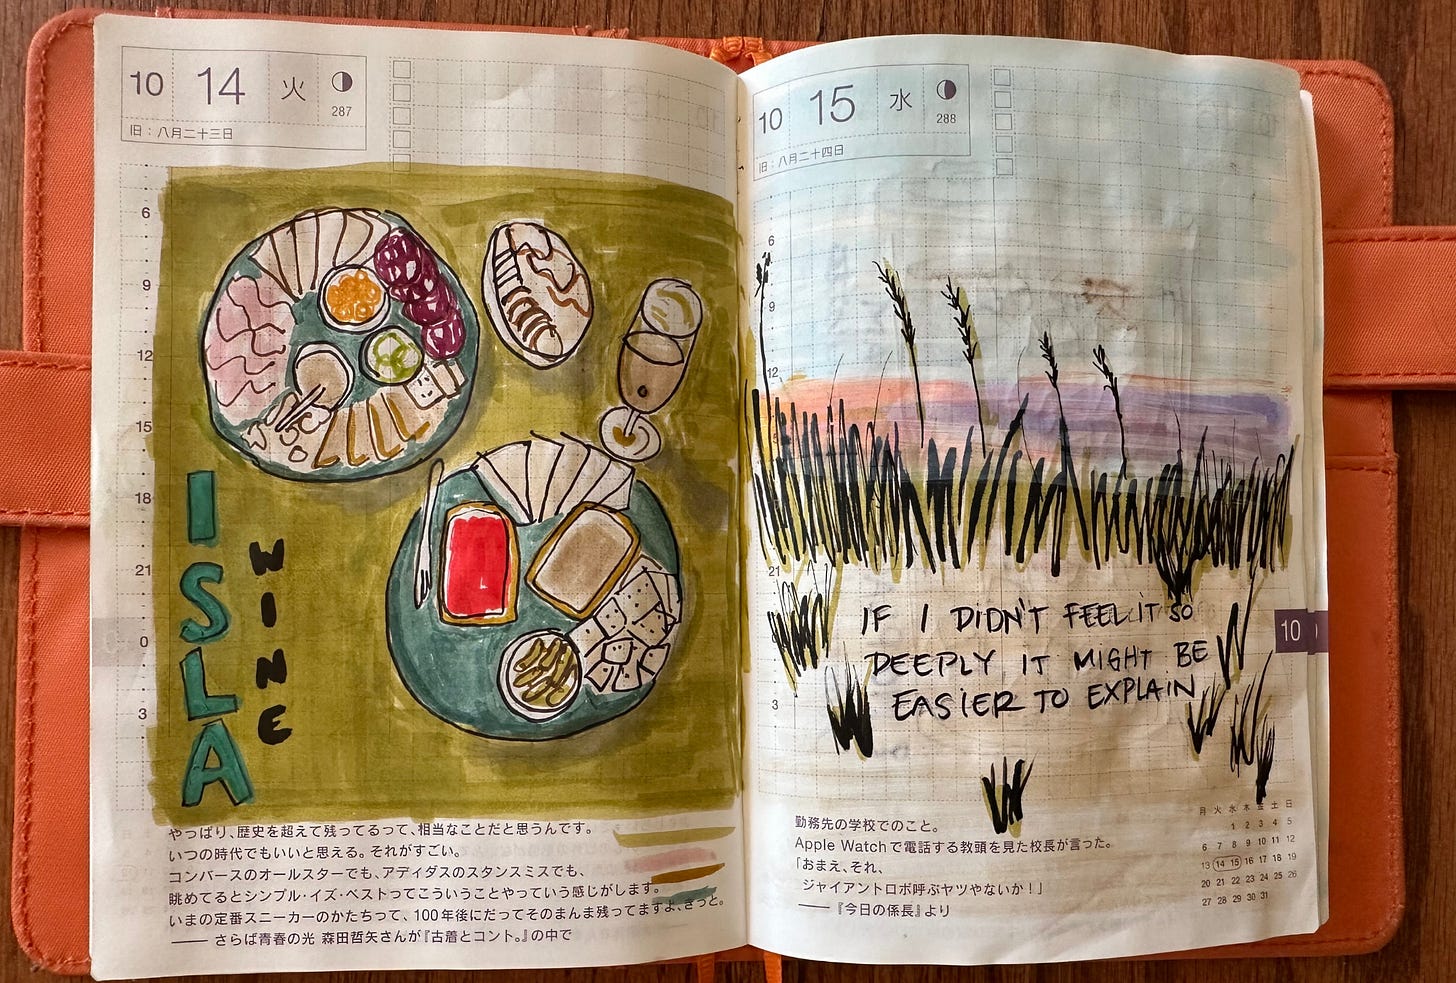 10 14 火
287
旧：八月二十三日
6
9
12
15
18
21
0
3
ISLA
WINE
やっぱり、歴史を超えて残ってるって、相当なことだと思うんです。
いつの時代でもいいと思える。それがすごい。
コンバースのオールスターでも、アディダスのスタンスミスでも、
眺めてるとシンプル・イズ・ベストってこういうことやっていう感じがします。
いまの定番スニーカーのかたちって、100年後にだってそのまんま残ってますよ、きっと。
—— さらば青春の光 森田哲矢さんが『古着とコント。』の中で
10 15 水
288
旧：八月二十四日
6
9
12
21
3
IF I DIDN'T FEEL IT SO
DEEPLY IT MIGHT BE
EASIER TO EXPLAIN
10
勤務先の学校でのこと。
Apple Watchで電話する教頭を見た校長が言った。
「おまえ、それ、
ジャイアントロボ呼ぶヤツやないか！」
——『今日の係長』より
月 火 水 木 金 土 日
1 2 3 4 5
6 7 8 9 10 11 12
13 14 15 16 17 18 19
20 21 22 23 24 25 26
27 28 29 30 31